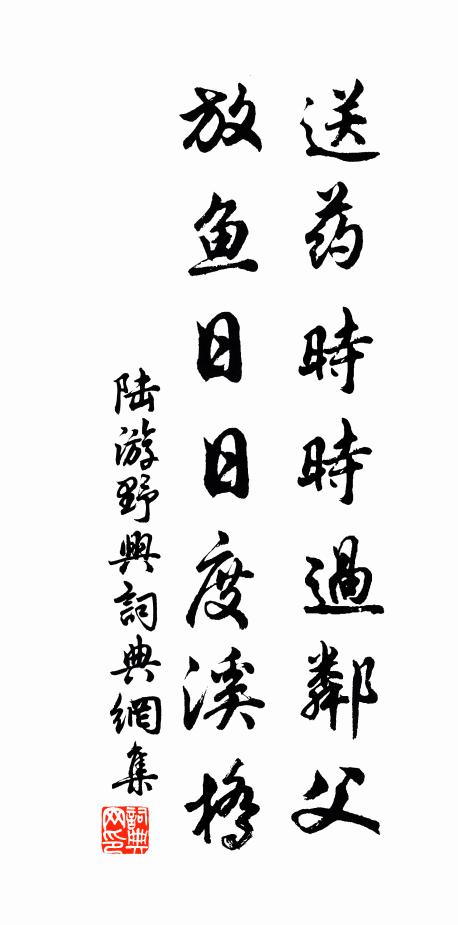 送药時時過鄰父
放鱼日日度溪橋
陆游野興詞典網集
詞典網印